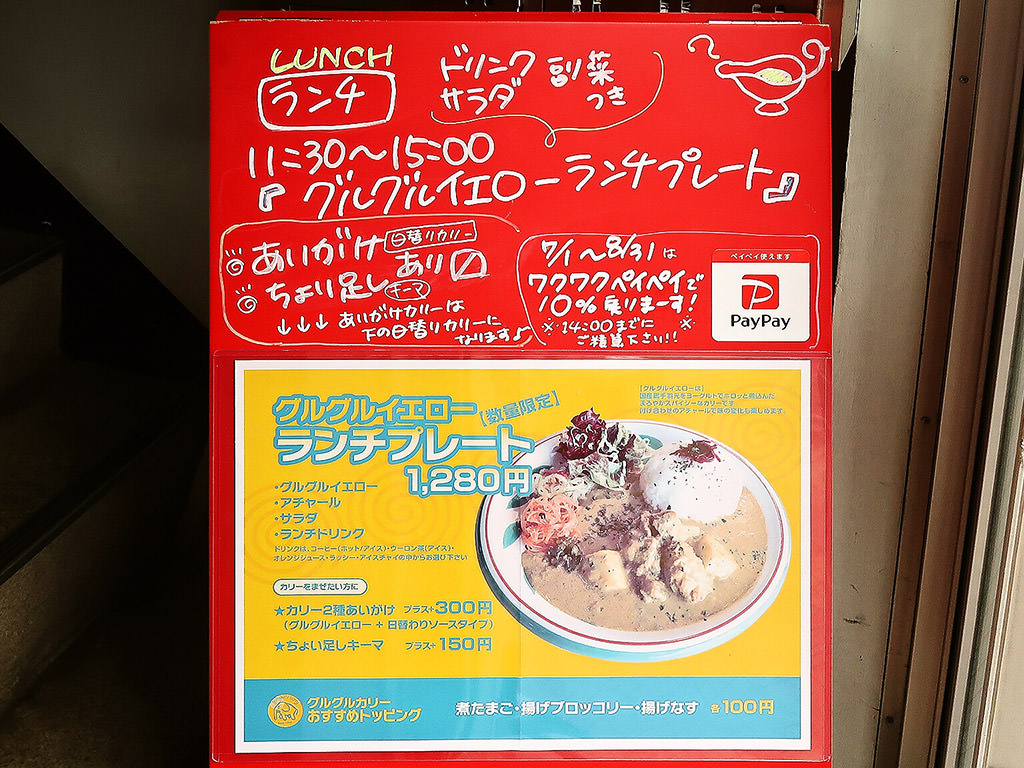 LUNCH
ランチ
ドリンク
サラダ
副菜
つき
11:30〜15:00
『グルグルイエローランチプレート』
あいがけ
日替りカリー
あり
ちょり足し
キーマ
↓↓↓ あいがけカリーは
下の日替りカリーに
なります♪
7/1〜8/31は
ワクワクペイペイで
10%戻りまーす!
※14:00までに※
ご精算下さい!!
ペイペイ使えます
PayPay
グルグルイエロー
【数量限定】
ランチプレート
1,280円
・グルグルイエロー
・アチャール
・サラダ
・ランチドリンク
ドリンクは、コーヒー(ホット/アイス)・ウーロン茶(アイス)・
オレンジジュース・ラッシー・アイスチャイの中からお選び下さい
【グルグルイエローは】
国産鶏手羽元をヨーグルトでホロッと煮込んだ
まろやかスパイシーなカリーです
付け合わせのアチャールで味の変化も楽しめます。
カリーをまぜたい方に
★カリー2種あいがけ プラス+300円
(グルグルイエロー + 日替わりソースタイプ)
★ちょい足しキーマ プラス+150円
グルグルカリー
おすすめトッピング
煮たまご・揚げブロッコリー・揚げなす 各100円